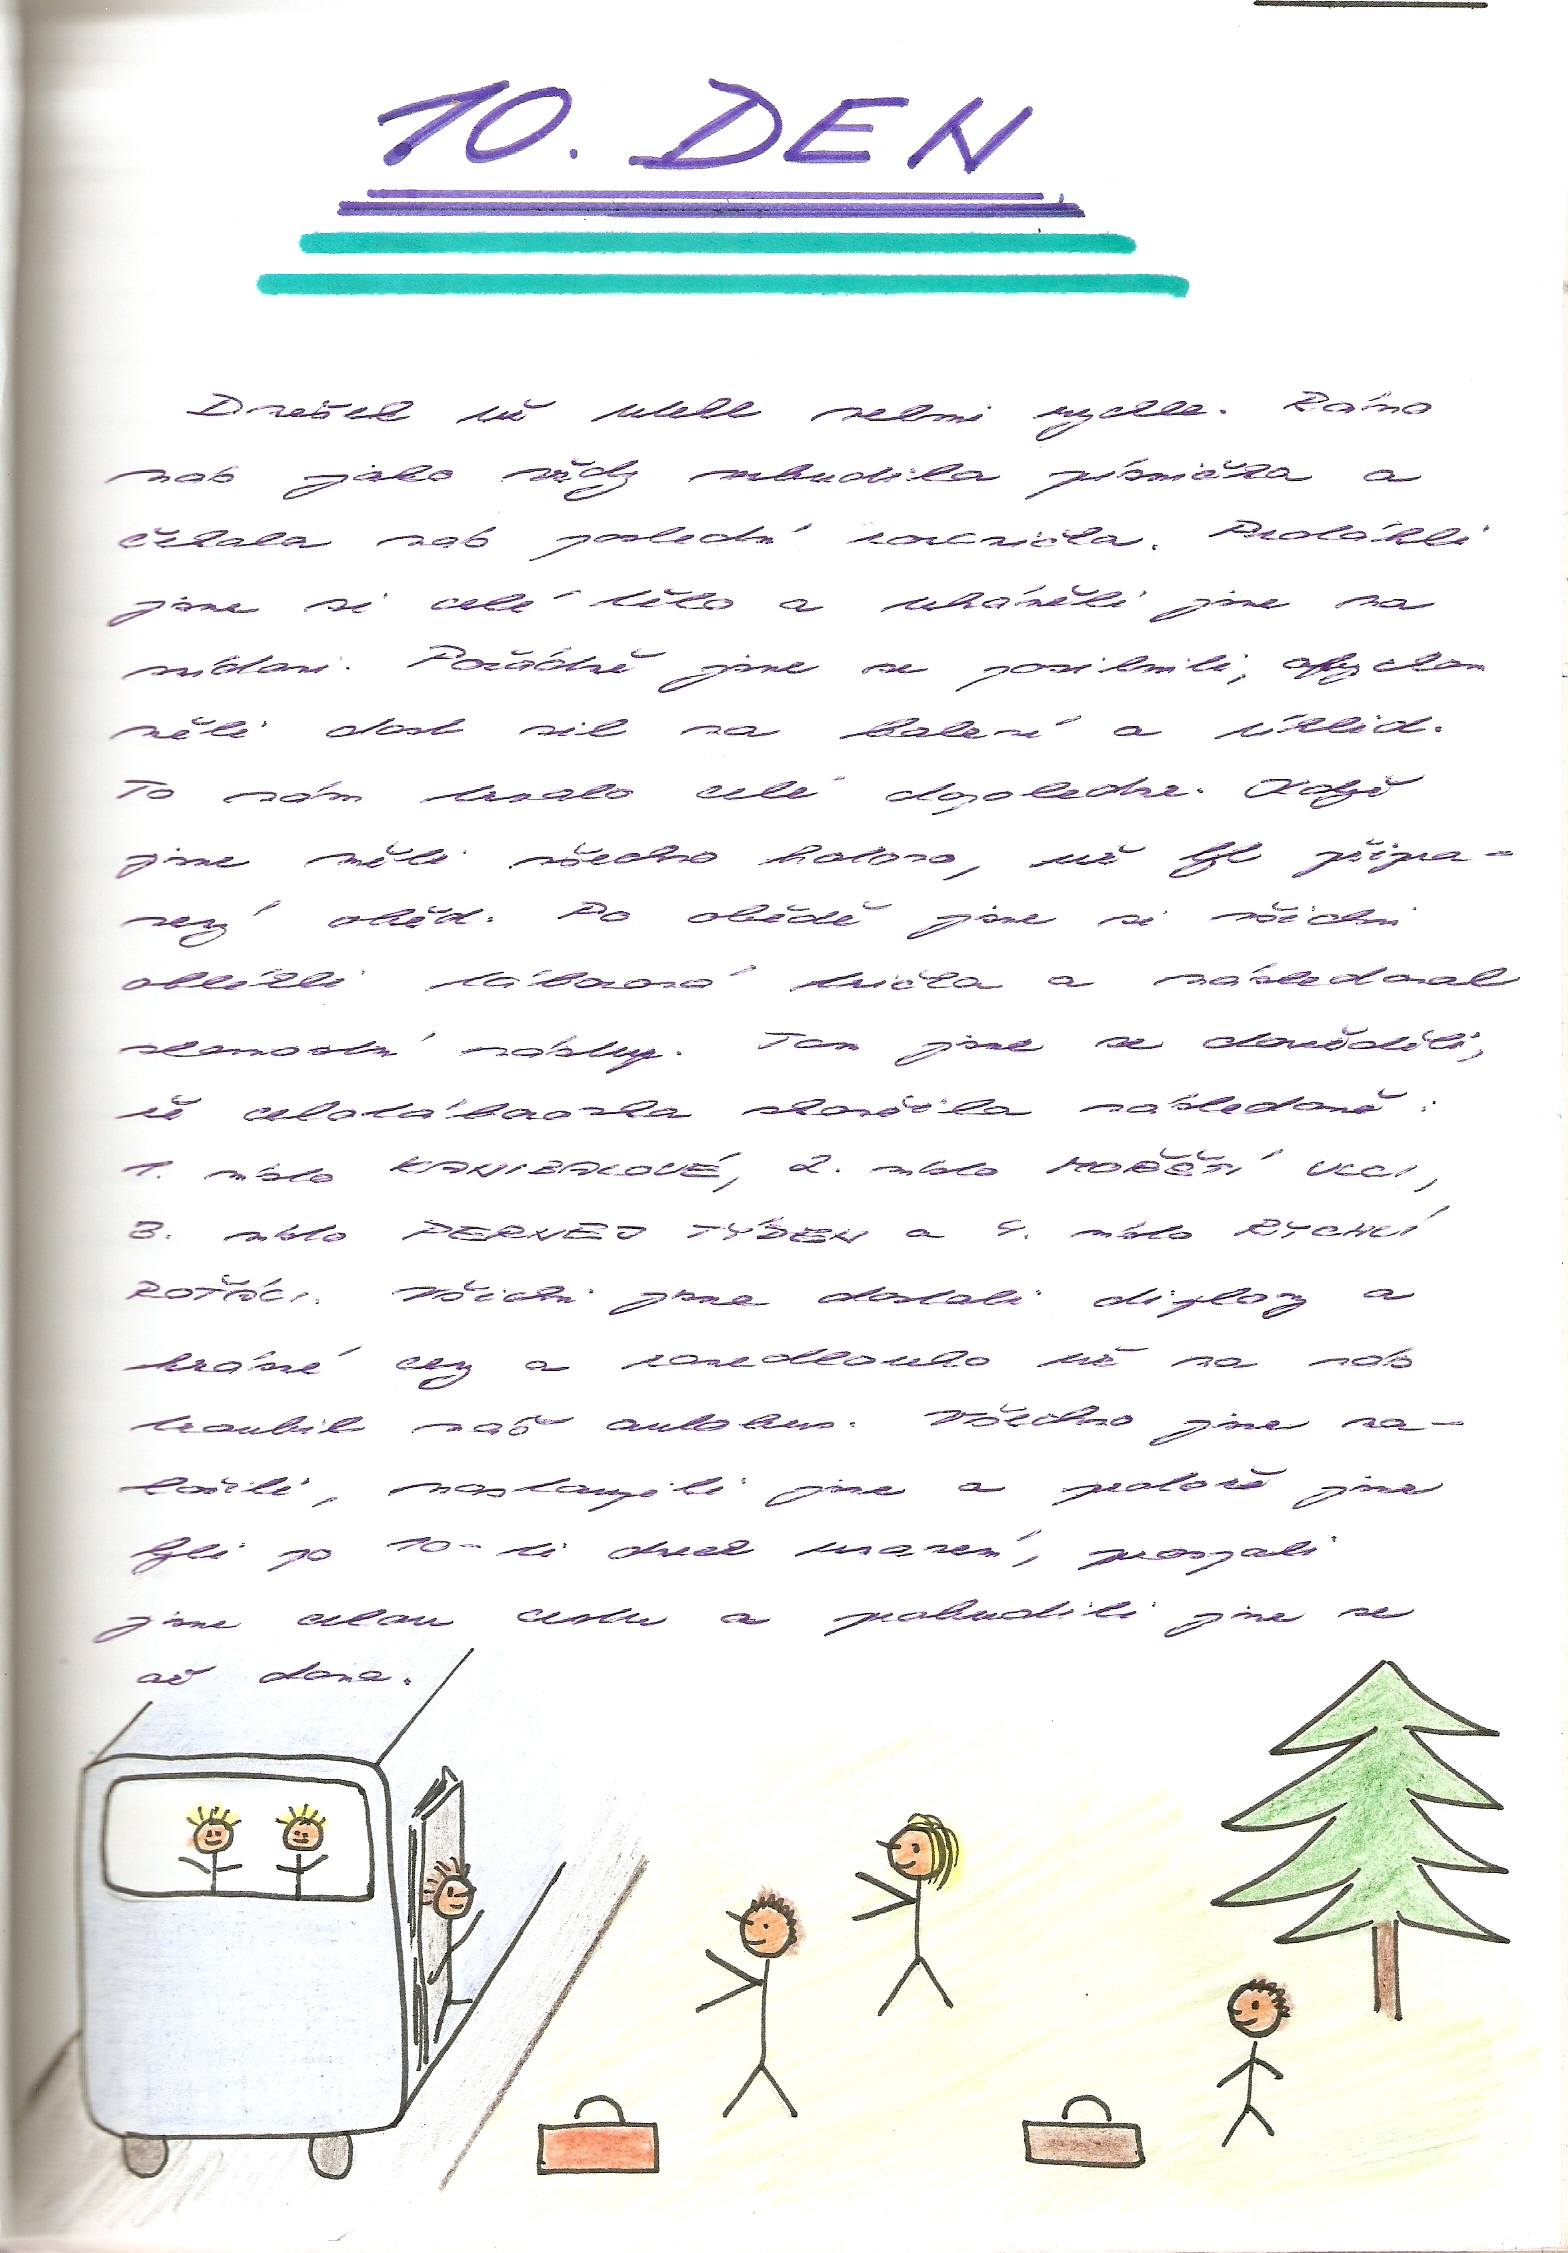 10. DEN
Dnešek už utekl velmi rychle. Ráno
nás jako vždy vzbudila písnička a
čekala nás poslední rozcvička. Protáhli
jsme si celé tělo a uháněli jsme na
snídani. Pořádně jsme se posilnili, abychom
měli dost sil na balení a úklid.
To nám trvalo celé dopoledne. Když
jsme měli všechno hotovo, už byl připra-
vený oběd. Po obědě jsme si všichni
oblékli táborová trička a následoval
slavnostní nástup. Tam jsme se dověděli,
že celotáborovka skončila následovně:
1. místo KANIBALOVÉ, 2. místo MOŘŠTÍ VLCI,
3. místo PERNEJ TÝDEN a 4. místo RYCHLÍ
ROŤÁCI. Všichni jsme dostali diplomy a
krásné ceny a zanedlouho už na nás
troubil náš autobus. Všechno jsme na-
ložili, nastoupili jsme a protože jsme
byli po 10-ti dnech unavení, prospali
jsme celou cestu a probudili jsme se
až doma.